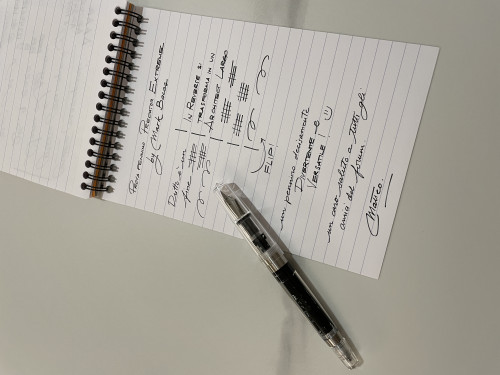 PROVA PENNINO PREDATOR EXTREME
by MARK BACAS
Dritto è un
fine
IN REVERSE SI
TRASFORMA IN UN
ARCHITECT LARGO
FLIP!
un pennino decisamente
DIVERTENTE e
VERSATILE! :)
un caro saluto a tutti gli
amici del forum